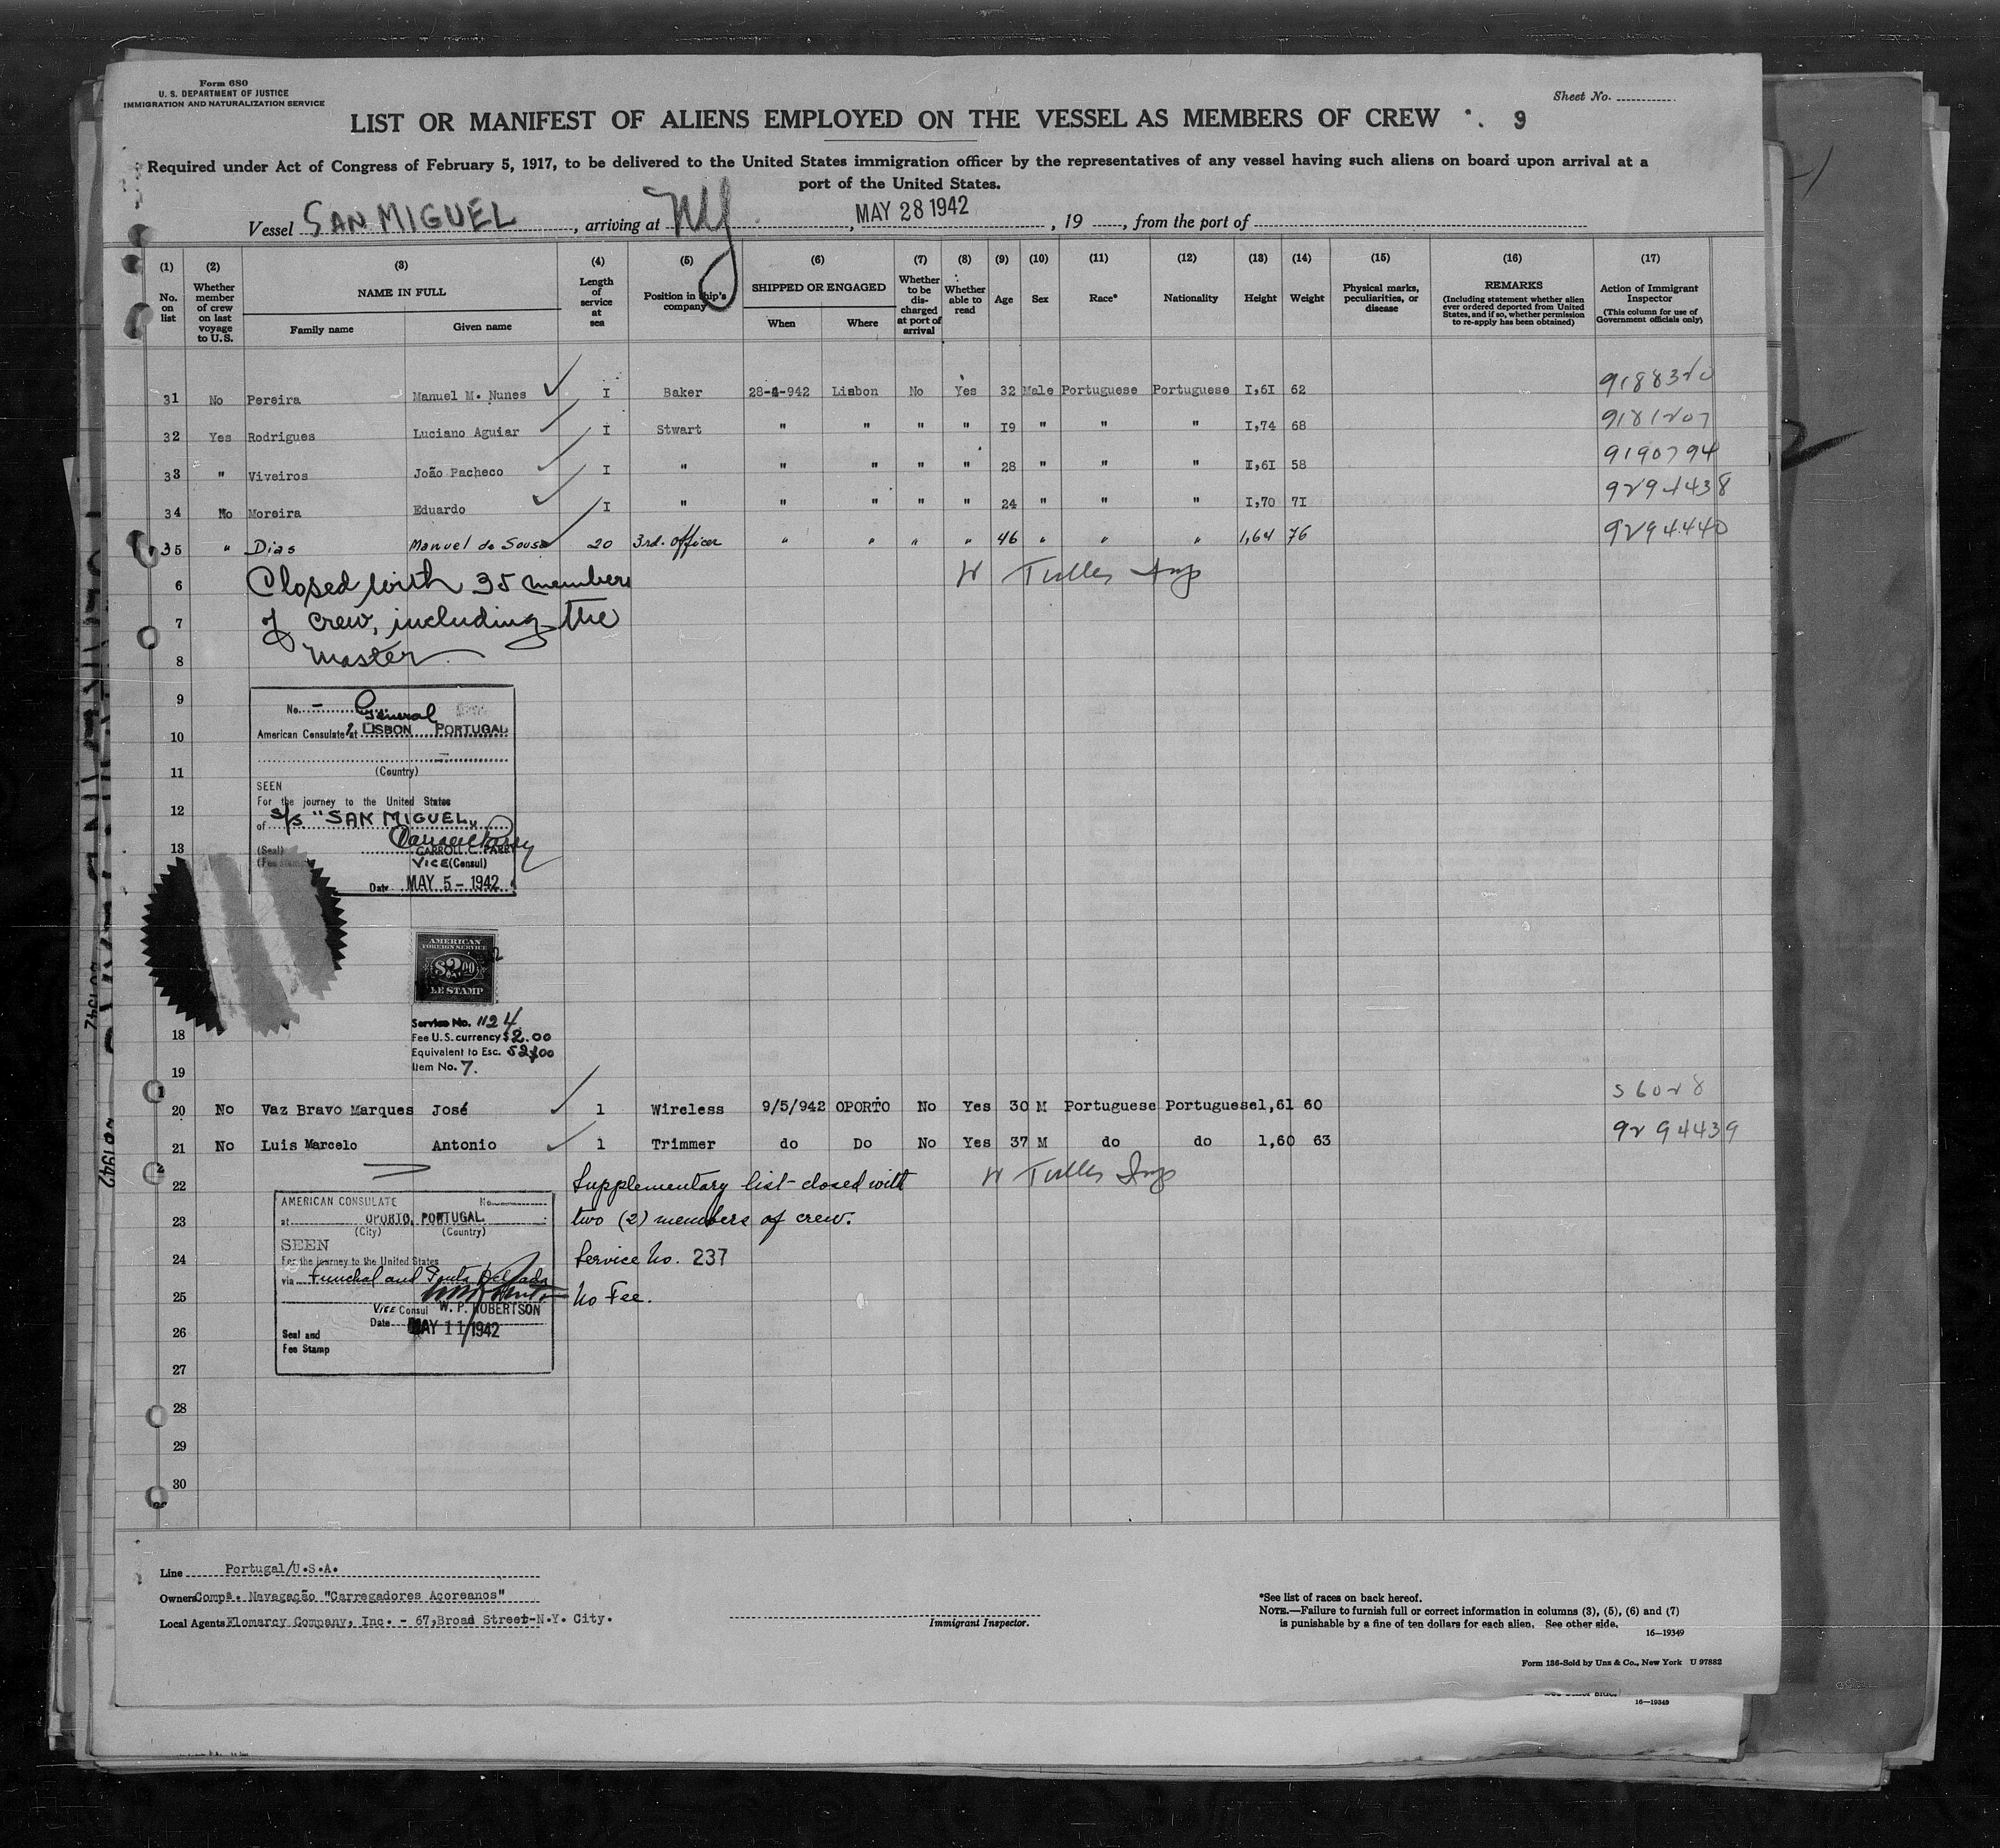 Form 680
U. S. DEPARTMENT OF JUSTICE
IMMIGRATION AND NATURALIZATION SERVICE
Sheet No.
LIST OR MANIFEST OF ALIENS EMPLOYED ON THE VESSEL AS MEMBERS OF CREW 9
Required under Act of Congress of February 5, 1917, to be delivered to the United States immigration officer by the representatives of any vessel having such aliens on board upon arrival at a
port of the United States.
Vessel SAN MIGUEL, arriving at NY, MAY 28 1942, 19, from the port of
(1) (2) (3) (4) (5) (6) (7) (8) (9) (10) (11) (12) (13) (14) (15) (16) (17)
No. on list
Whether member of crew on last voyage to U.S.
NAME IN FULL
Family name Given name
Length of service at sea
Position in ship's company
SHIPPED OR ENGAGED
When Where
Whether to be discharged at port of arrival
Whether able to read
Age Sex Race* Nationality Height Weight
Physical marks, peculiarities, or disease
REMARKS
(Including statement whether alien ever ordered deported from United States, and if so, whether permission to re-apply has been obtained)
Action of Immigrant Inspector
(This column for use of Government officials only)
31 No Pereira Manuel M. Nunes I Baker 28-4-942 Lisbon No Yes 32 Male Portuguese Portuguese I,6I 62 9188320
32 Yes Rodrigues Luciano Aguiar I Stwart " " " " I9 " " " I,74 68 9181207
33 " Viveiros João Pacheco I " " " " " 28 " " " I,6I 58 9190794
34 No Moreira Eduardo I " " " " " 24 " " " I,70 7I 9294438
35 " Dias Manuel de Sousa 20 3rd. officer " " " " 46 " " " 1,64 76 9294440
6 Closed with 35 members W Tulles Insp
7 of crew, including the
8 Master.
9 No. - General
10 American Consulate at LISBON PORTUGAL
11 (Country)
SEEN
12 For the journey to the United States
of S/S "SAN MIGUEL"
13 (Seal) CARROLL C. PARRY
VICE (Consul)
Date MAY 5 - 1942
AMERICAN
FOREIGN SERVICE
$2.00
FEE STAMP
Service No. 1124
18 Fee U.S. currency $2.00
Equivalent to Esc. 52$00
Item No. 7.
19
20 No Vaz Bravo Marques José 1 Wireless 9/5/942 OPORTO No Yes 30 M Portuguese Portuguese 1,61 60 56028
21 No Luis Marcelo Antonio 1 Trimmer do Do No Yes 37 M do do 1,60 63 9294439
22 Supplementary list closed with W Tulles Insp
23 two (2) members of crew.
24 Service No. 237
25 No Fee.
AMERICAN CONSULATE No.
at OPORTO, PORTUGAL.
(City) (Country)
SEEN
For the journey to the United States
via Funchal and Ponta Delgada
VICE Consul W. P. ROBERTSON
Date MAY 11 1942
Seal and
Fee Stamp
26
27
28
29
30
Line Portugal/U.S.A.
Owners Compª. Navegação "Carregadores Açoreanos"
Local Agents Flomarcy Company, Inc. - 67, Broad Street-N.Y. City.
Immigrant Inspector.
*See list of races on back hereof.
NOTE.—Failure to furnish full or correct information in columns (3), (5), (6) and (7)
is punishable by a fine of ten dollars for each alien. See other side.
16—19349
Form 136-Sold by Unz & Co., New York U 97882
16—19349